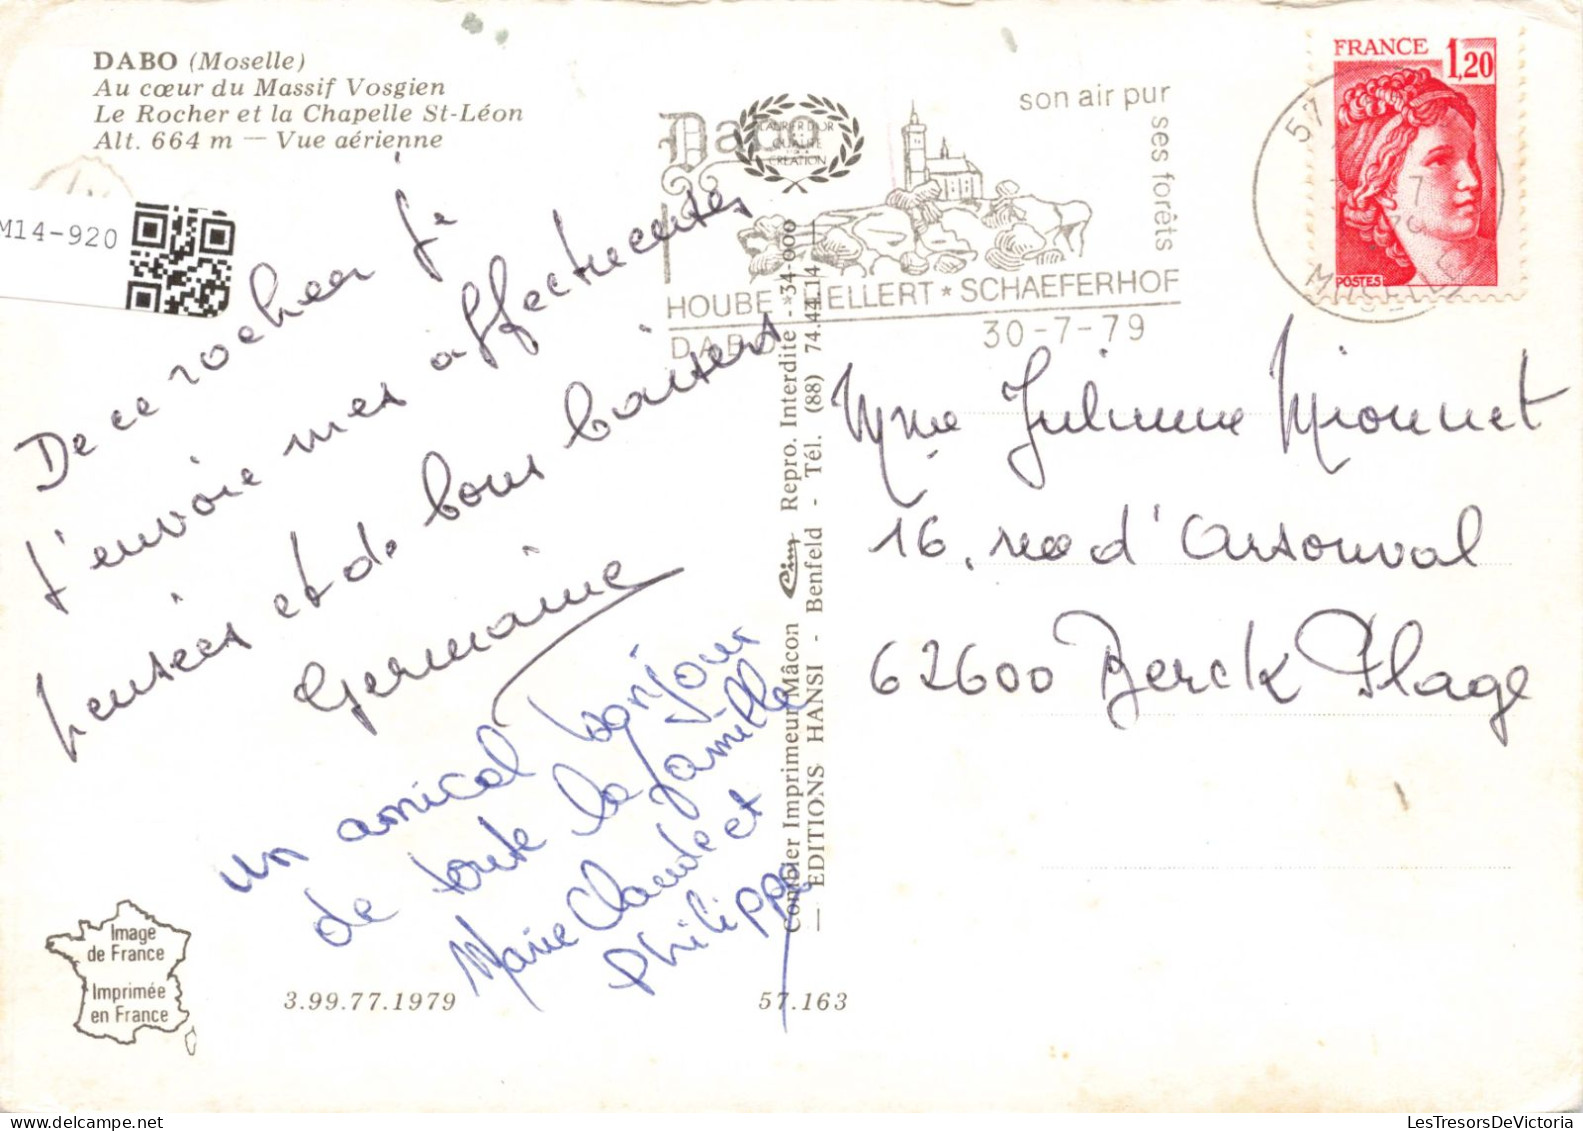 DABO (Moselle)
Au cœur du Massif Vosgien
Le Rocher et la Chapelle St-Léon
Alt. 664 m — Vue aérienne
M14-920
De ce rocher je
t'envoie mes affectueuses
pensées et de bons baisers
Germaine
un amical bonjour
de toute la famille
Marie Claude et
Philippe
Image
de France
Imprimée
en France
3.99.77.1979
57.163
Combier Imprimeur Mâcon Cim Repro. Interdite - *34-000
— EDITIONS HANSI - Benfeld - Tél. (88) 74.44.14 —
Dabo
LAURIER D'OR
QUALITÉ
CRÉATION
son air pur
ses forêts
HOUBE * HELLERT * SCHAEFERHOF
DABO
30-7-79
57
MOSELLE
FRANCE 1,20
POSTES
Mme Julienne Mionnet
16, rue d'Arsonval
62600 Berck Plage
LesTresorsDeVictoria